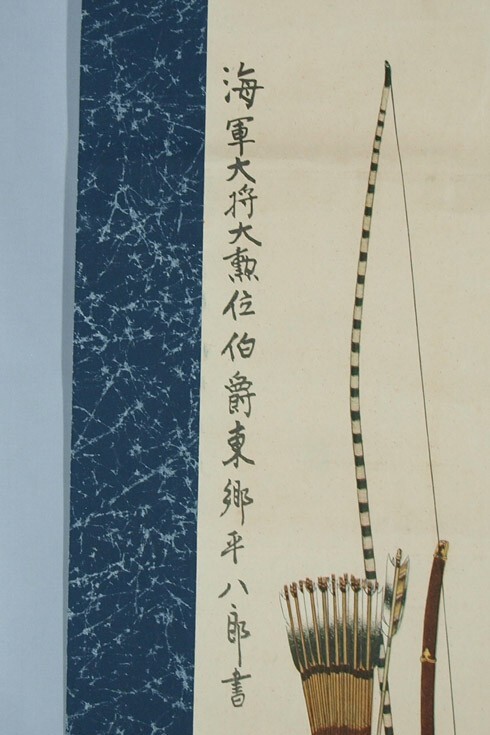 海軍大将大勲位伯爵東郷平八郎書